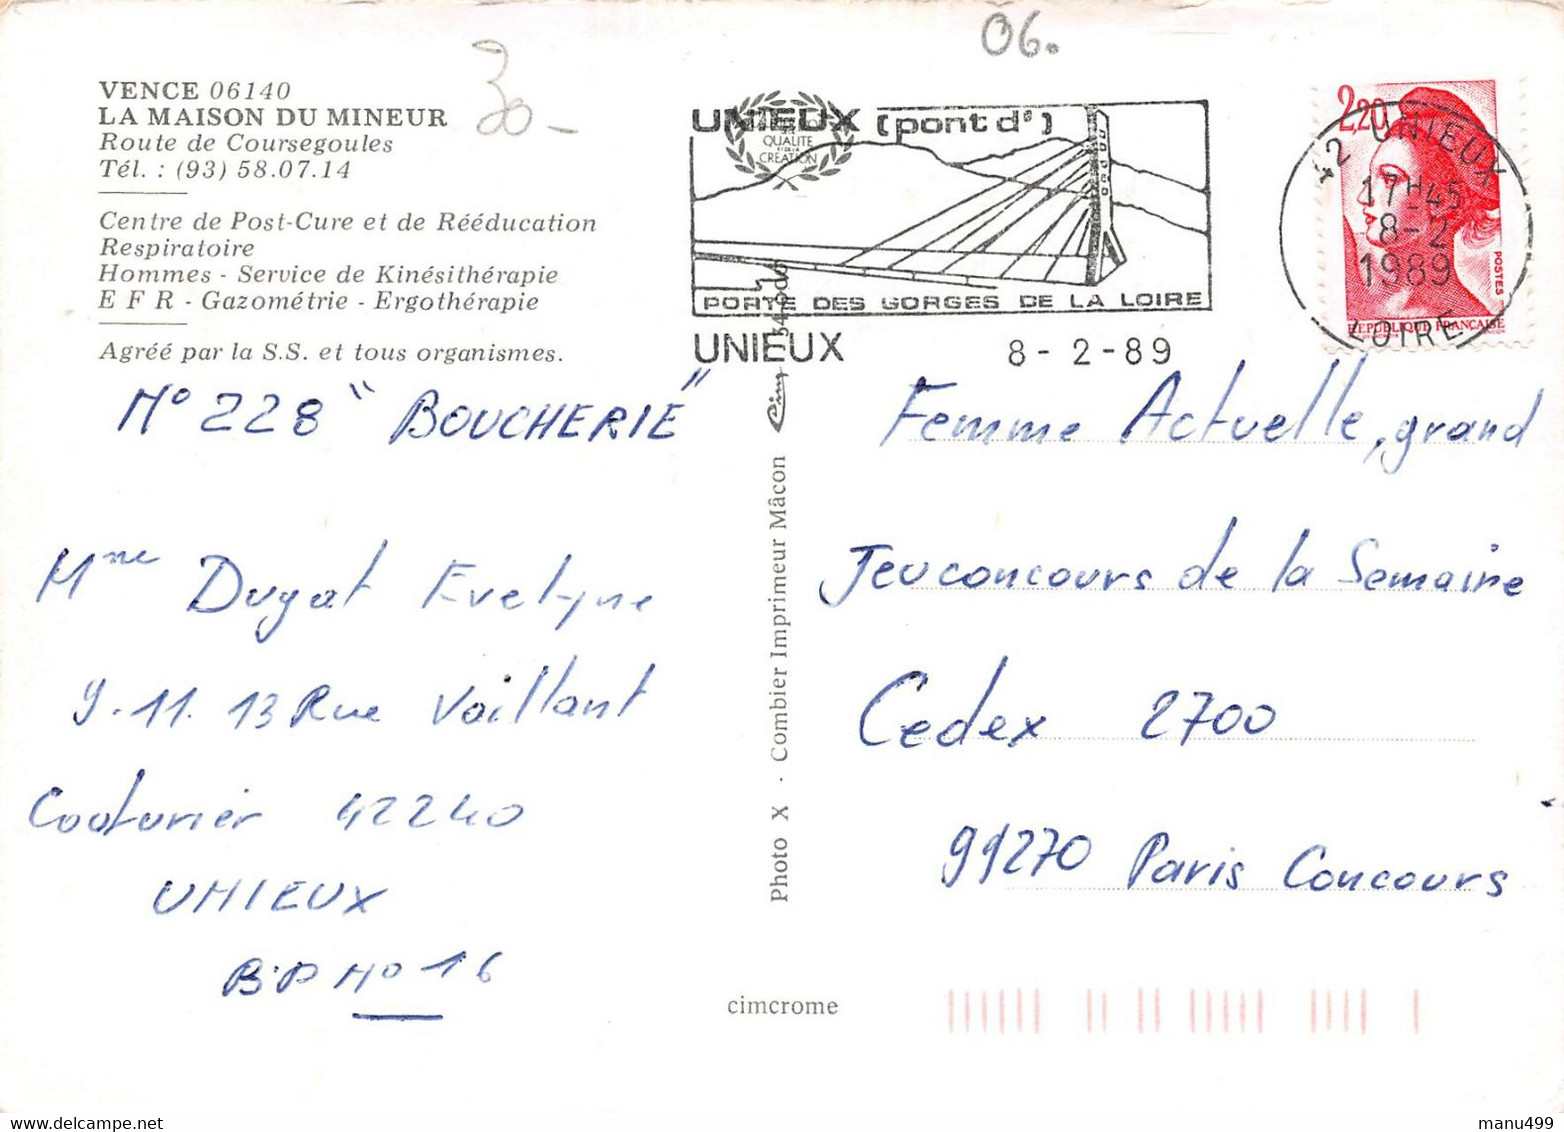 06.
30-
VENCE 06140
LA MAISON DU MINEUR
Route de Coursegoules
Tél. : (93) 58.07.14
Centre de Post-Cure et de Rééducation
Respiratoire
Hommes - Service de Kinésithérapie
E F R - Gazométrie - Ergothérapie
Agréé par la S.S. et tous organismes.
N° 228 "BOUCHERIE"
Mme Dugat Evelyne
9.11.13 Rue Vaillant
Couturier 42240
UNIEUX
B.P N° 16
UNIEUX (pont d')
QUALITE
CREATION
PORTE DES GORGES DE LA LOIRE
UNIEUX 8-2-89
2,20
POSTES
REPUBLIQUE FRANCAISE
42 UNIEUX
17H45
8-2
1989
LOIRE
Photo X - Combier Imprimeur Mâcon Cim
cimcrome
Femme Actuelle, grand
Jeu concours de la Semaine
Cedex 2700
99270 Paris Concours
manu499